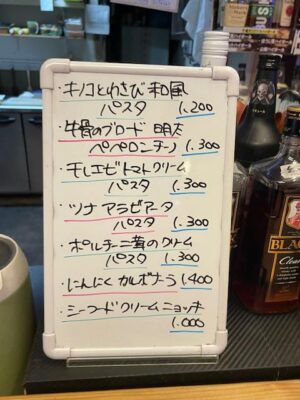 ・キノコとわさび 和風
パスタ 1.200
・牛骨のブロード 明太
ペペロンチーノ 1.300
・干しエビトマトクリーム
パスタ 1.300
・ツナ アラビアータ
パスタ 1.300
・ポルチーニ茸のクリーム
パスタ 1.300
・にんにく カルボナーラ 1.400
・シーフードクリーム ニョッキ
1.000
BLACK
Clear